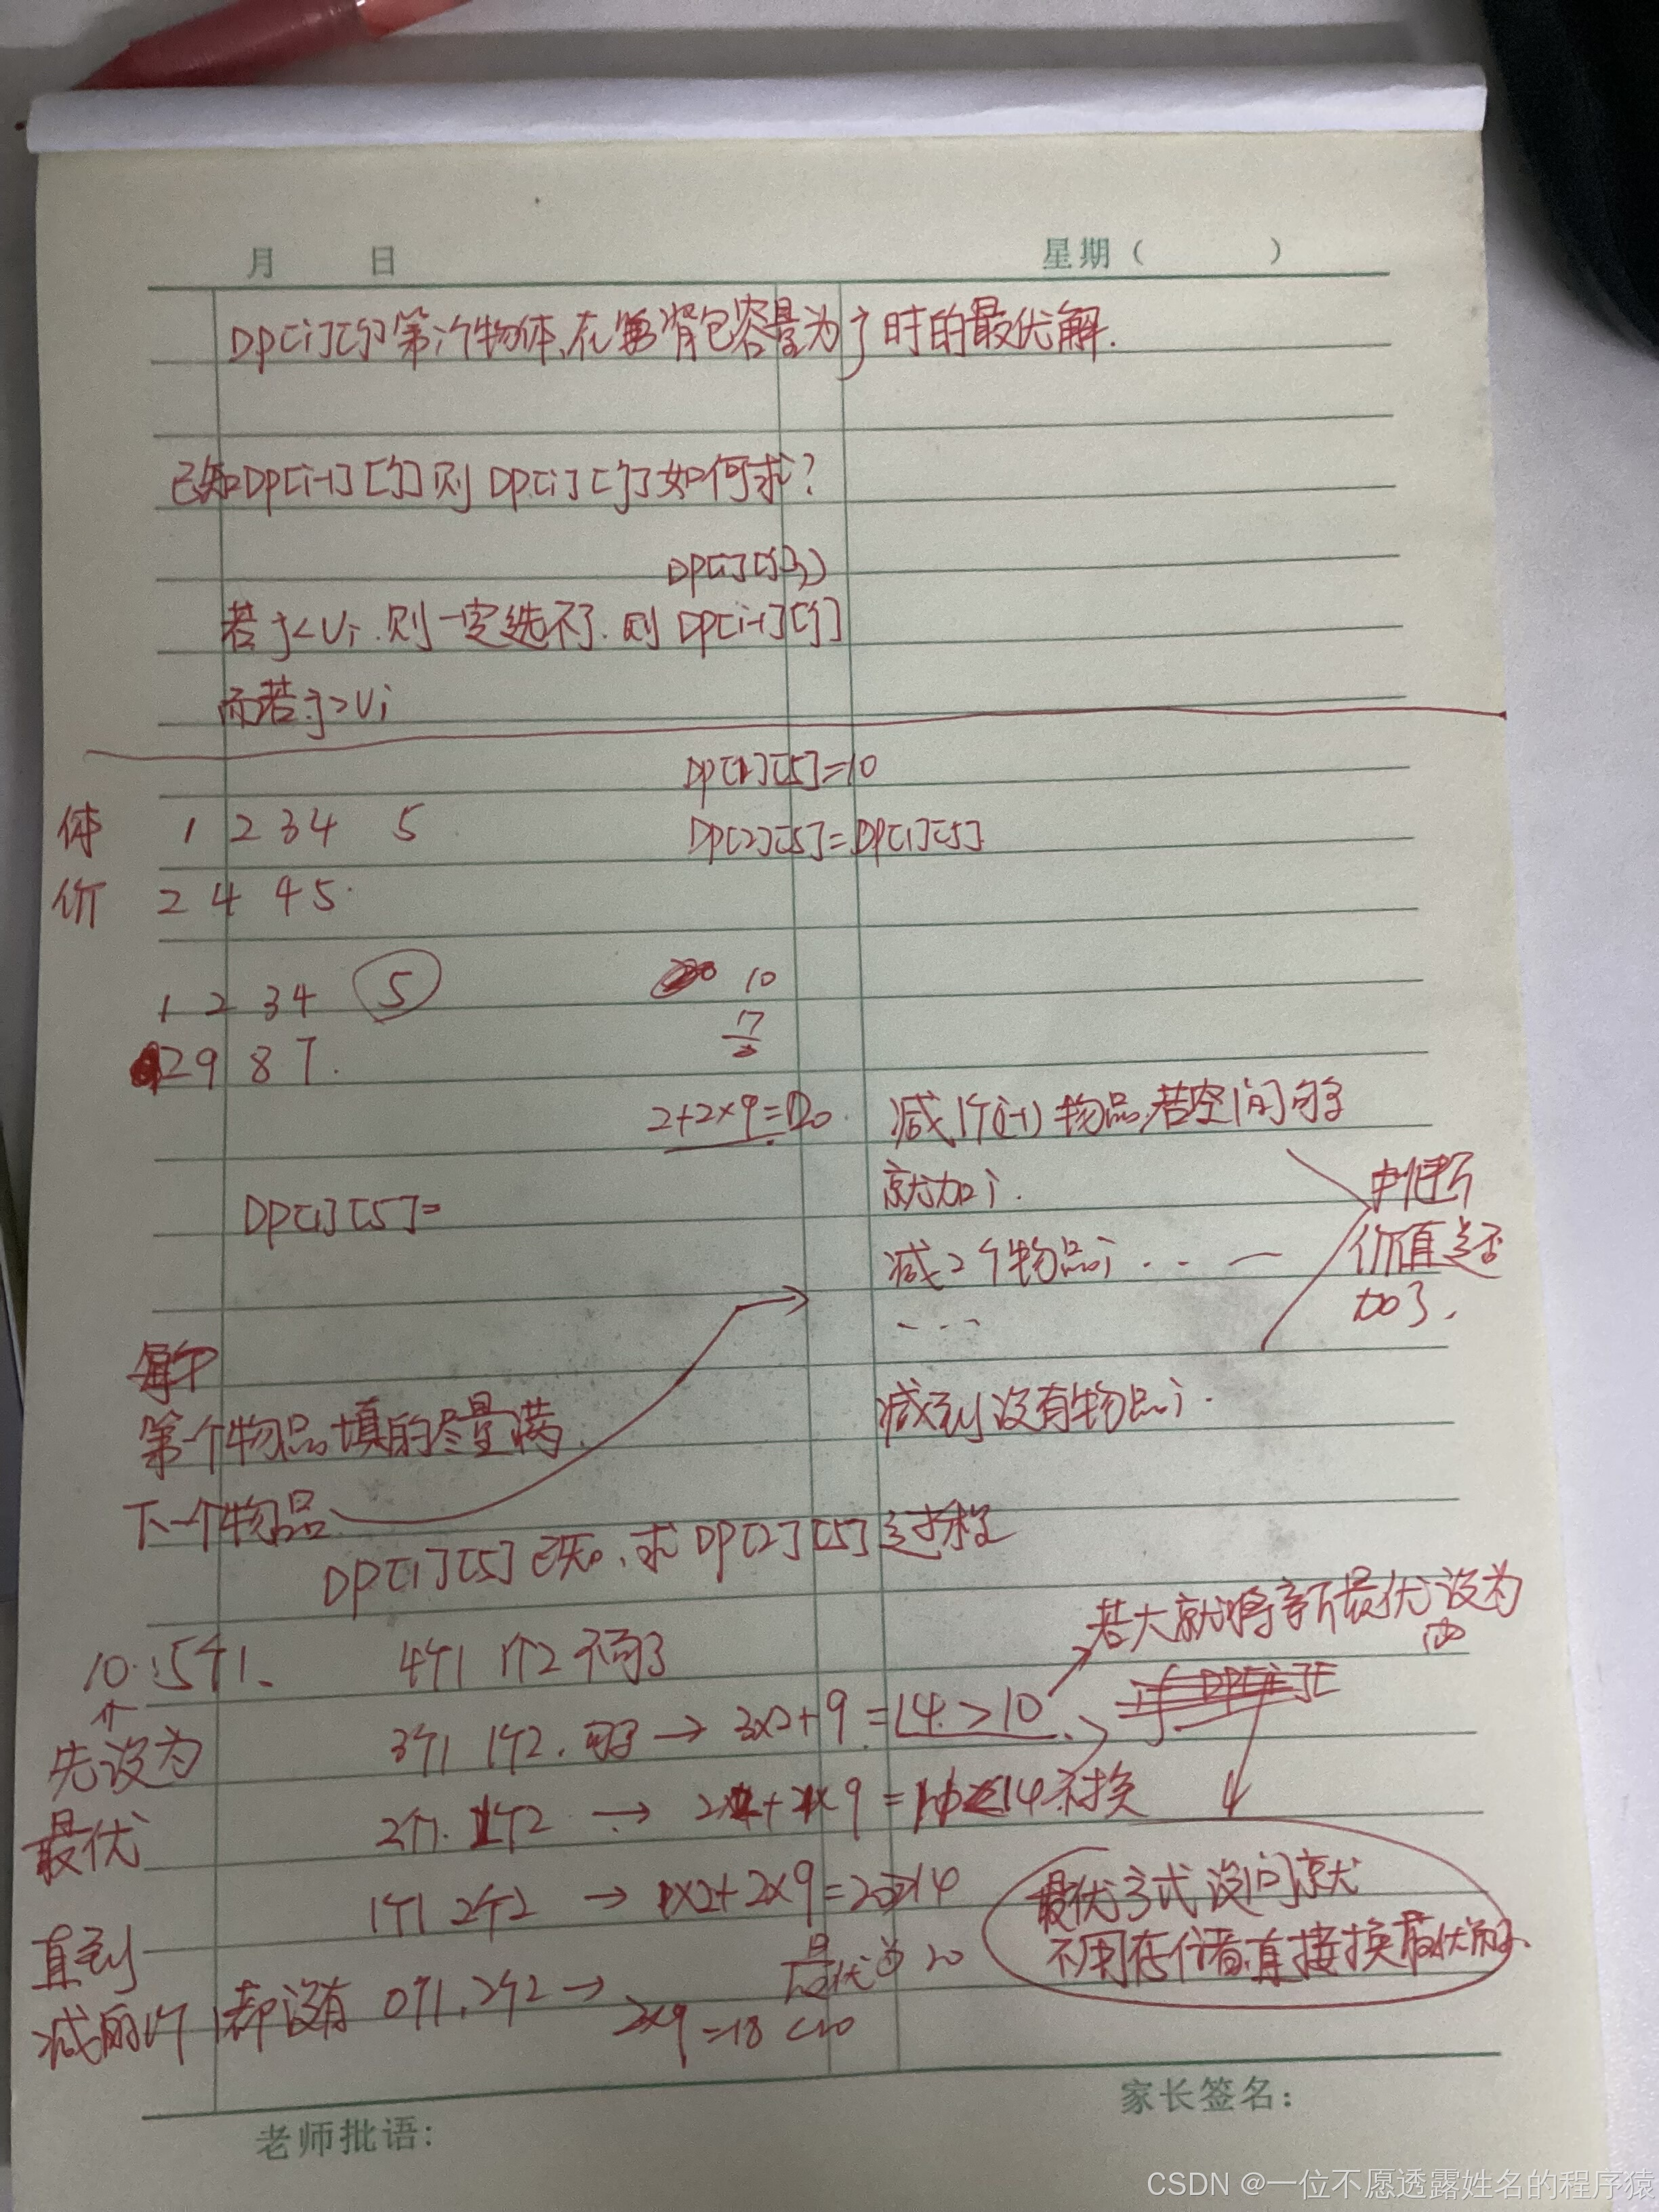 月 日 星期（ ）
DP[i][j]第i个物体,在背包容量为j时的最优解.
已知DP[i-1][j]则DP[i][j]如何求?
DP[i][j]
若j<Vi.则一定选不了.则DP[i-1][j]
而若j>Vi
DP[1][5]=10
体 1 2 3 4 5
DP[2][5]=DP[1][5]
价 2 4 4 5
1 2 3 4 5
10
17
2 9 8 7.
2+2×9=20.
减1个(i-1)物品,若空间够
就加i.
判断
价值是否
加了.
DP[1][5]=
减2个物品i . . . —
- - -
减到没有物品i.
每个
第一个物品填的尽量满.
下一个物品
DP[1][5]已知,求DP[2][5]过程
若大就将新最优设为
10. 5个1. 4个1 1个2 不可
先设为
最优
3个1 1个2. 可 → 3×2+9=14>10
2个1. 1个2 → 2×2+1×9=1 <14不换
1个1 2个2 → 1×2+2×9=20>14
最优为20
最优方式没问就
不用存储直接换最优解.
直到
减的1个1都没有 0个1,2个2→ 2×9=18<20
老师批语:
家长签名:
CSDN @一位不愿透露姓名的程序猿